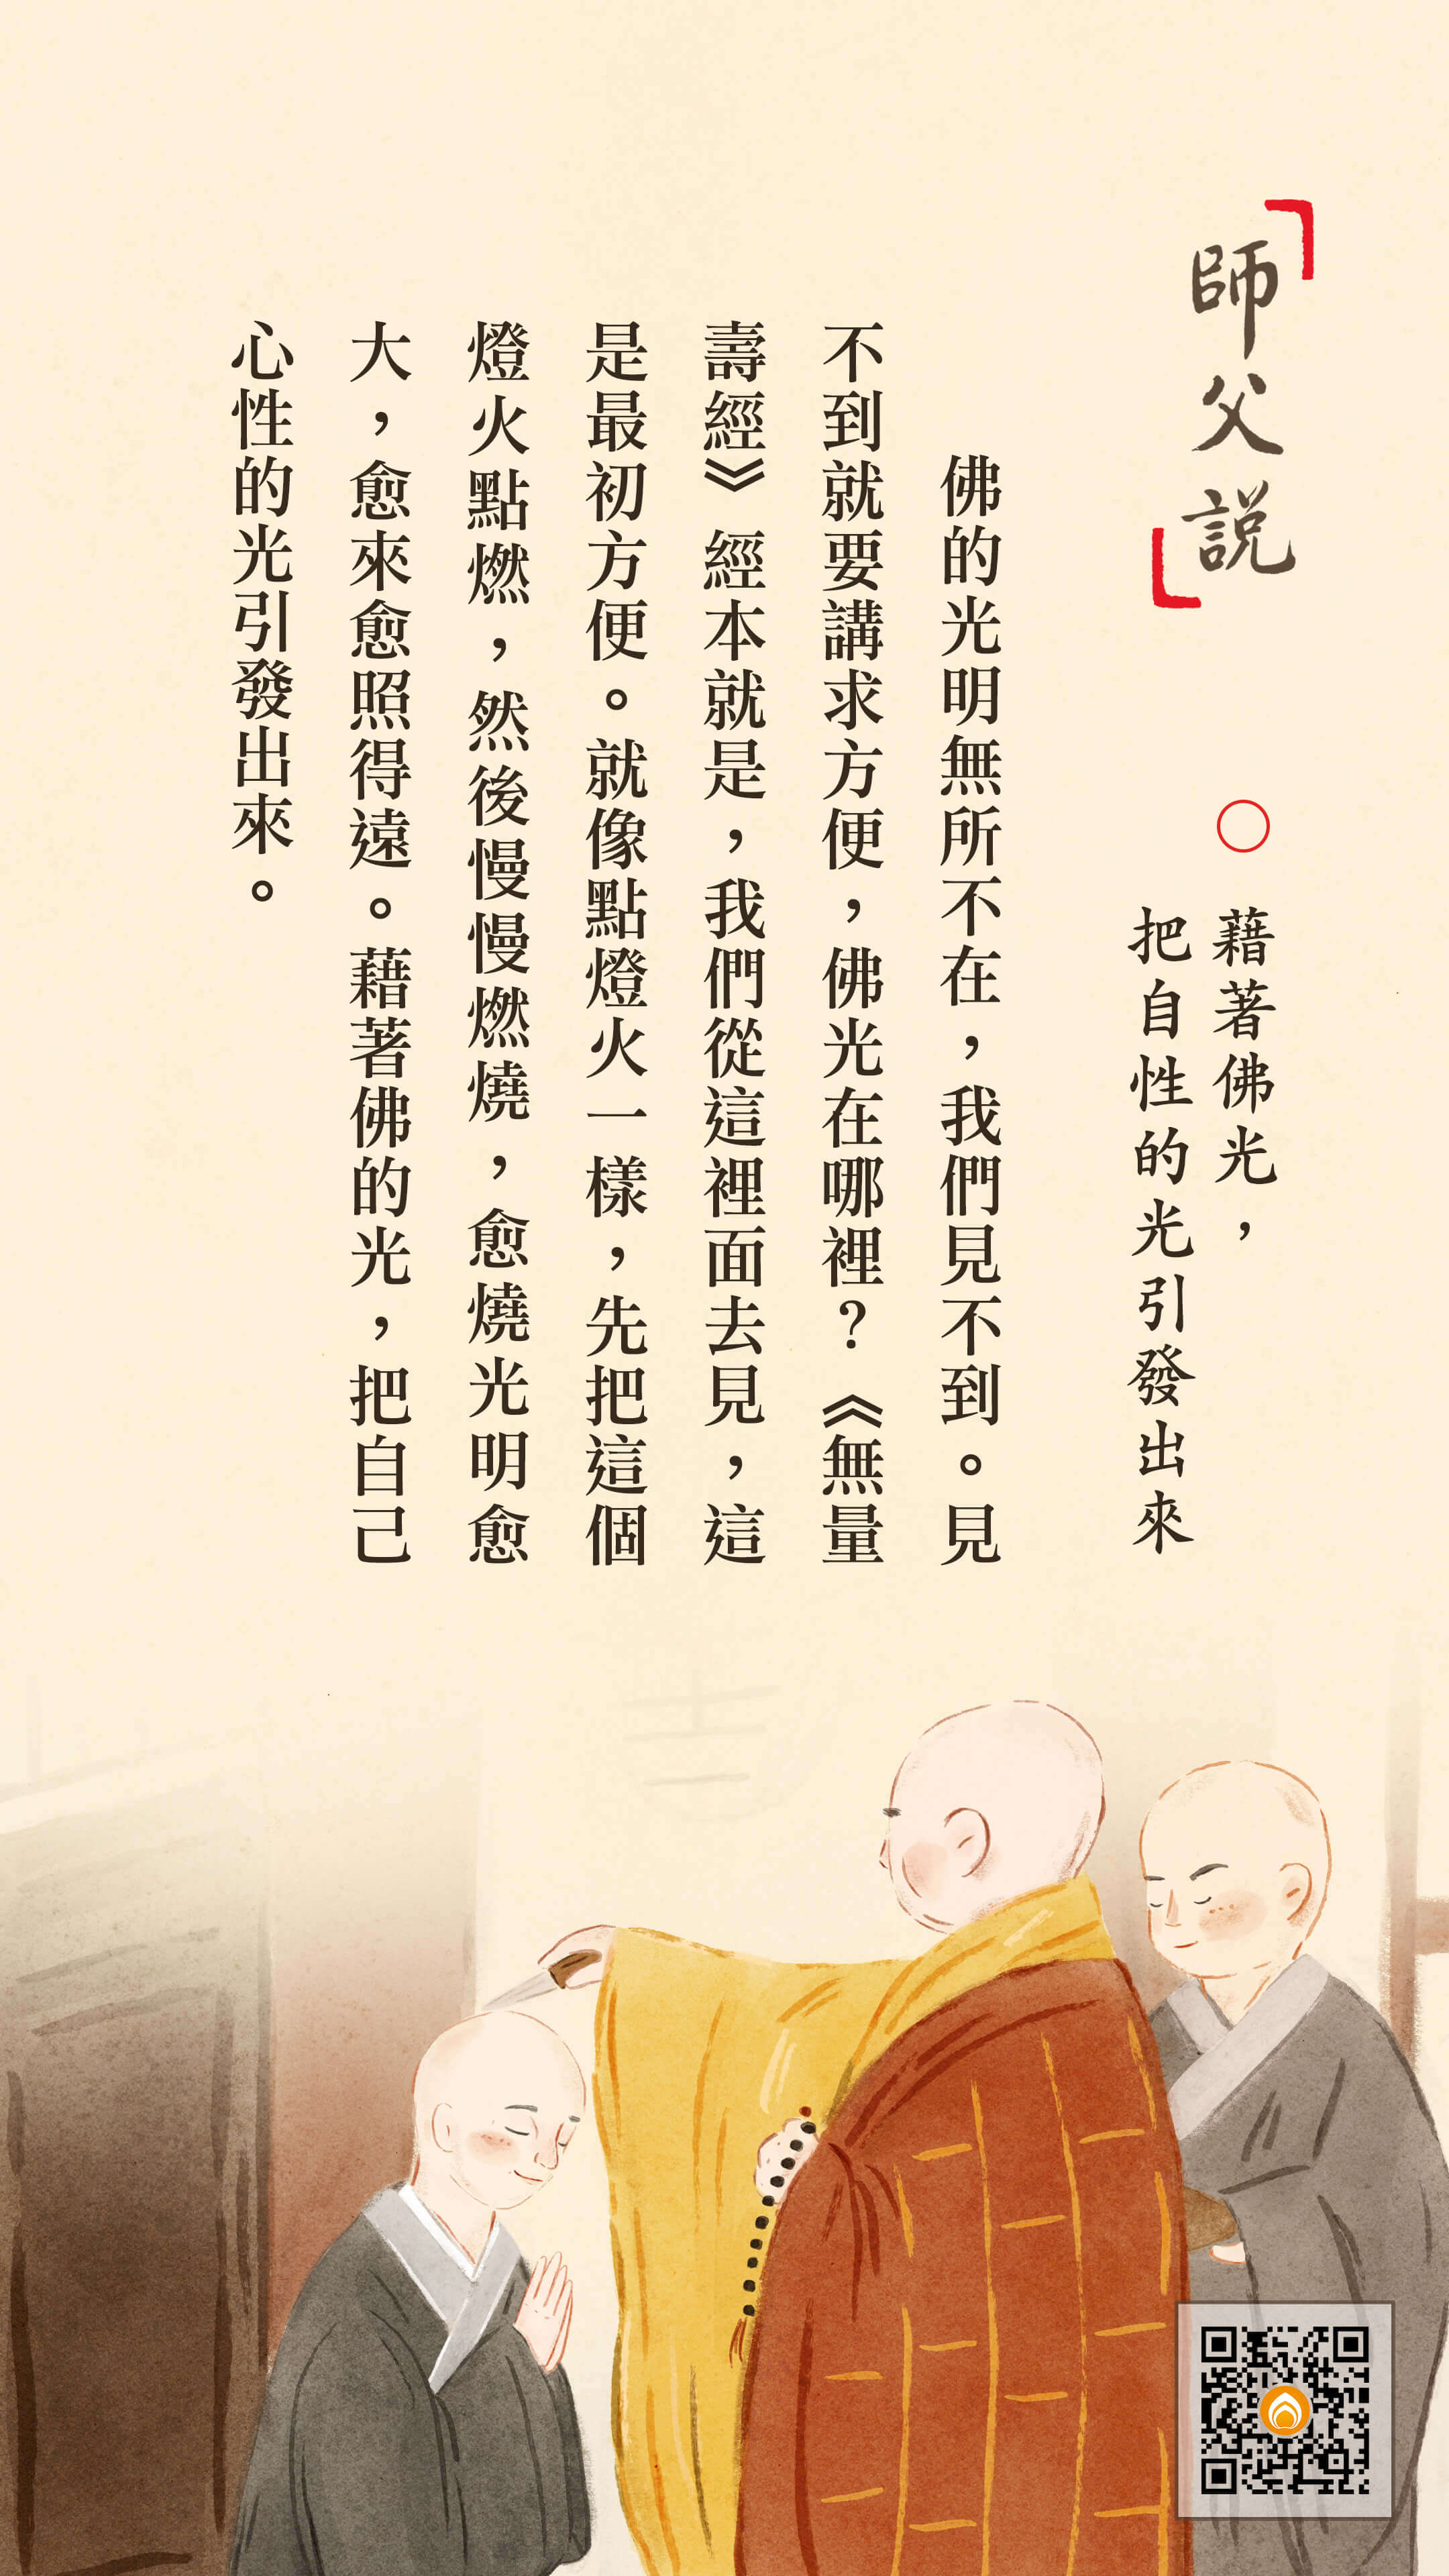 師父說
藉著佛光，
把自性的光引發出來
佛的光明無所不在，我們見不到。見
不到就要講求方便，佛光在哪裡？《無量
壽經》經本就是，我們從這裡面去見，這
是最初方便。就像點燈火一樣，先把這個
燈火點燃，然後慢慢燃燒，愈燒光明愈
大，愈來愈照得遠。藉著佛的光，把自己
心性的光引發出來。